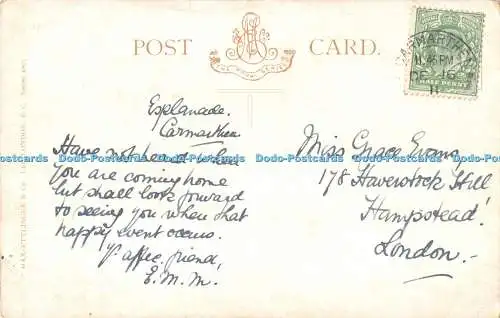 POST CARD.
THE ROYAL SERIES
CARMARTHEN
11.45 PM
DE 16
11
HALF PENNY
Esplanade.
Carmarthen
Have not heard when
you are coming home
but shall look forward
to seeing you when that
happy event occurs.
Yr affec. friend,
E. M. M.
Miss Grace Evans
178 Haverstock Hill
Hampstead
London.
Dodo-Postcards Dodo-Postcards Dodo-Postcards Dodo-Postcards Dodo-Postcards
LONDON, E.C.